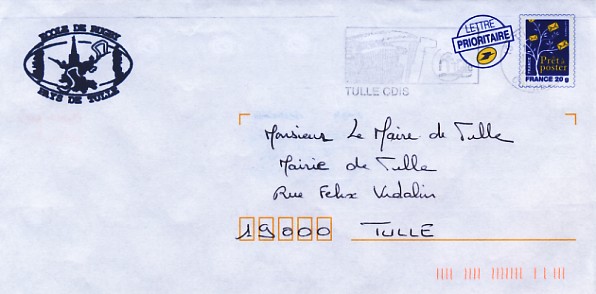 ECOLE DE RUGBY
PAYS DE TULLE
LETTRE
PRIORITAIRE
Prêt à
poster
FRANCE
FRANCE 20 g
TULLE CDIS
Monsieur Le Maire de Tulle
Mairie de Tulle
Rue Felix Vidalin
19000 TULLE